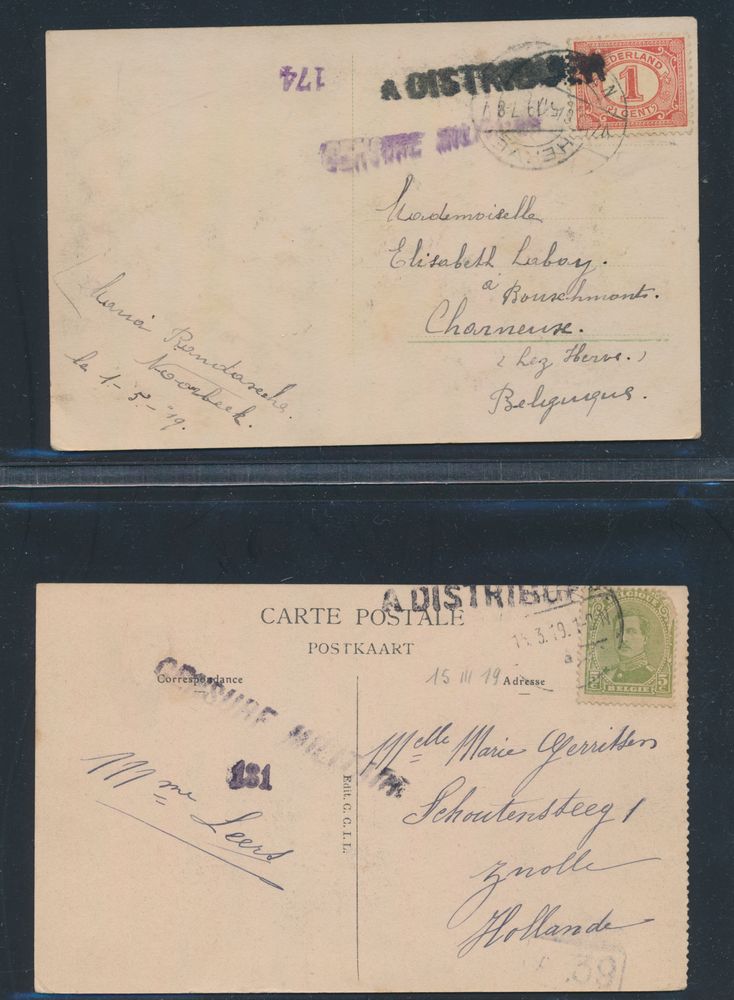 174
A DISTRIBUER
NEDERLAND
1
CENT
HERVE
CENSURE MILITAIRE
Mademoiselle
Elisabeth Laboy.
à Bouxhmont.
Charneux.
(Lez Herve.)
Belgique.
Maria
Noorbeek.
le 1-5-19.
A DISTRIBUER
CARTE POSTALE
POSTKAART
Correspondance
15 III 19
Adresse
BELGIE
5
CENSURE MILITAIRE
181
Mme Leers
Edit. C. C. I. L.
Melle Marie Gerritsen
Schoutensteeg 1
Zwolle
Hollande
39